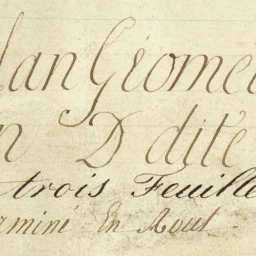 lan Giomet
n D dite
trois Feuille
rminé En Aout